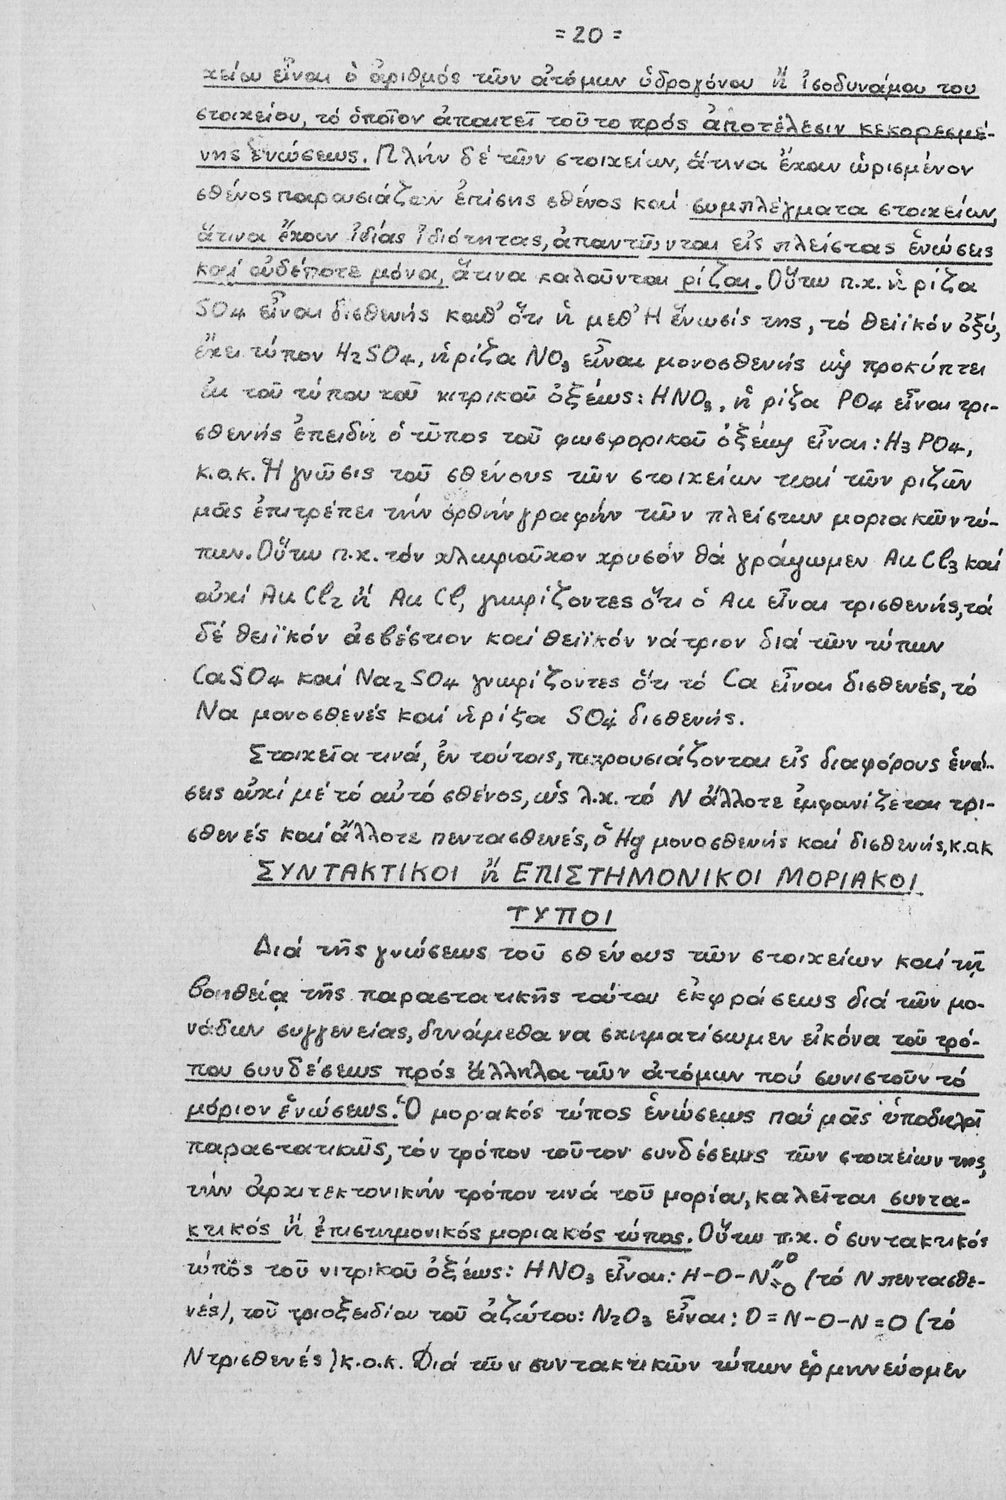 = 20 =
χείου εἶναι ὁ ἀριθμός τῶν ἀτόμων ὑδρογόνου ἤ ἰσοδυνάμου του
στοιχείου, τό ὁποῖον ἀπαιτεῖ τοῦτο πρός ἀποτέλεσιν κεκορεσμέ-
νης ἑνώσεως. Πλήν δέ τῶν στοιχείων, ἅτινα ἔχουν ὡρισμένον
σθένος παρουσιάζουν ἐπίσης σθένος καί συμπλέγματα στοιχείων,
ἅτινα ἔχουν ἰδίας ἰδιότητας, ἀπαντῶνται εἰς πλείστας ἑνώσεις
καί οὐδέποτε μόνα, ἅτινα καλοῦνται ρίζαι. Οὕτω π.χ. ἡ ρίζα
SO4 εἶναι δισθενής καθ' ὅτι ἡ μεθ' H ἕνωσίς της, τό θειϊκόν ὀξύ,
ἔχει τύπον H2SO4, ἡ ρίζα NO3 εἶναι μονοσθενής ὡς προκύπτει
ἐκ τοῦ τύπου τοῦ νιτρικοῦ ὀξέως: HNO3, ἡ ρίζα PO4 εἶναι τρι-
σθενής ἐπειδή ὁ τύπος τοῦ φωσφορικοῦ ὀξέως εἶναι: H3PO4,
κ.ο.κ. Ἡ γνῶσις τοῦ σθένους τῶν στοιχείων καί τῶν ριζῶν
μᾶς ἐπιτρέπει τήν ὀρθήν γραφήν τῶν πλείστων μοριακῶν τύ-
πων. Οὕτω π.χ. τόν χλωριοῦχον χρυσόν θά γράψωμεν AuCl3 καί
οὐχί AuCl2 ἤ AuCl, γνωρίζοντες ὅτι ὁ Au εἶναι τρισθενής, τά
δέ θειϊκόν ἀσβέστιον καί θειϊκόν νάτριον διά τῶν τύπων
CaSO4 καί Na2SO4 γνωρίζοντες ὅτι τό Ca εἶναι δισθενές, τό
Na μονοσθενές καί ἡ ρίζα SO4 δισθενής.
Στοιχεῖα τινά, ἐν τούτοις, παρουσιάζονται εἰς διαφόρους ἑνώ-
σεις οὐχί μέ τό αὐτό σθένος, ὡς λ.χ. τό N ἄλλοτε ἐμφανίζεται τρι-
σθενές καί ἄλλοτε πεντασθενές, ὁ Hg μονοσθενής καί δισθενής, κ.ο.κ
ΣΥΝΤΑΚΤΙΚΟΙ ἤ ΕΠΙΣΤΗΜΟΝΙΚΟΙ ΜΟΡΙΑΚΟΙ
ΤΥΠΟΙ
Διά τῆς γνώσεως τοῦ σθένους τῶν στοιχείων καί τῇ
βοηθείᾳ τῆς παραστατικῆς τούτου ἐκφράσεως διά τῶν μο-
νάδων συγγενείας, δυνάμεθα να σχηματίσωμεν εἰκόνα τοῦ τρό-
που συνδέσεως πρός ἄλληλα τῶν ἀτόμων πού συνιστοῦν τό
μόριον ἑνώσεως. Ὁ μοριακός τύπος ἑνώσεως πού μᾶς ὑποδηλοῖ
παραστατικῶς, τόν τρόπον τοῦτον συνδέσεως τῶν στοιχείων της,
τήν ἀρχιτεκτονικήν τρόπον τινά τοῦ μορίου, καλεῖται συντα-
κτικός ἤ ἐπιστημονικός μοριακός τύπος. Οὕτω π.χ. ὁ συντακτικός
τύπος τοῦ νιτρικοῦ ὀξέως: HNO3 εἶναι: H-O-N=O=O (τό N πεντασθε-
νές), τοῦ τριοξειδίου τοῦ ἀζώτου: N2O3 εἶναι: O=N-O-N=O (τό
N τρισθενές) κ.ο.κ. Διά τῶν συντακτικῶν τύπων ἑρμηνεύομεν